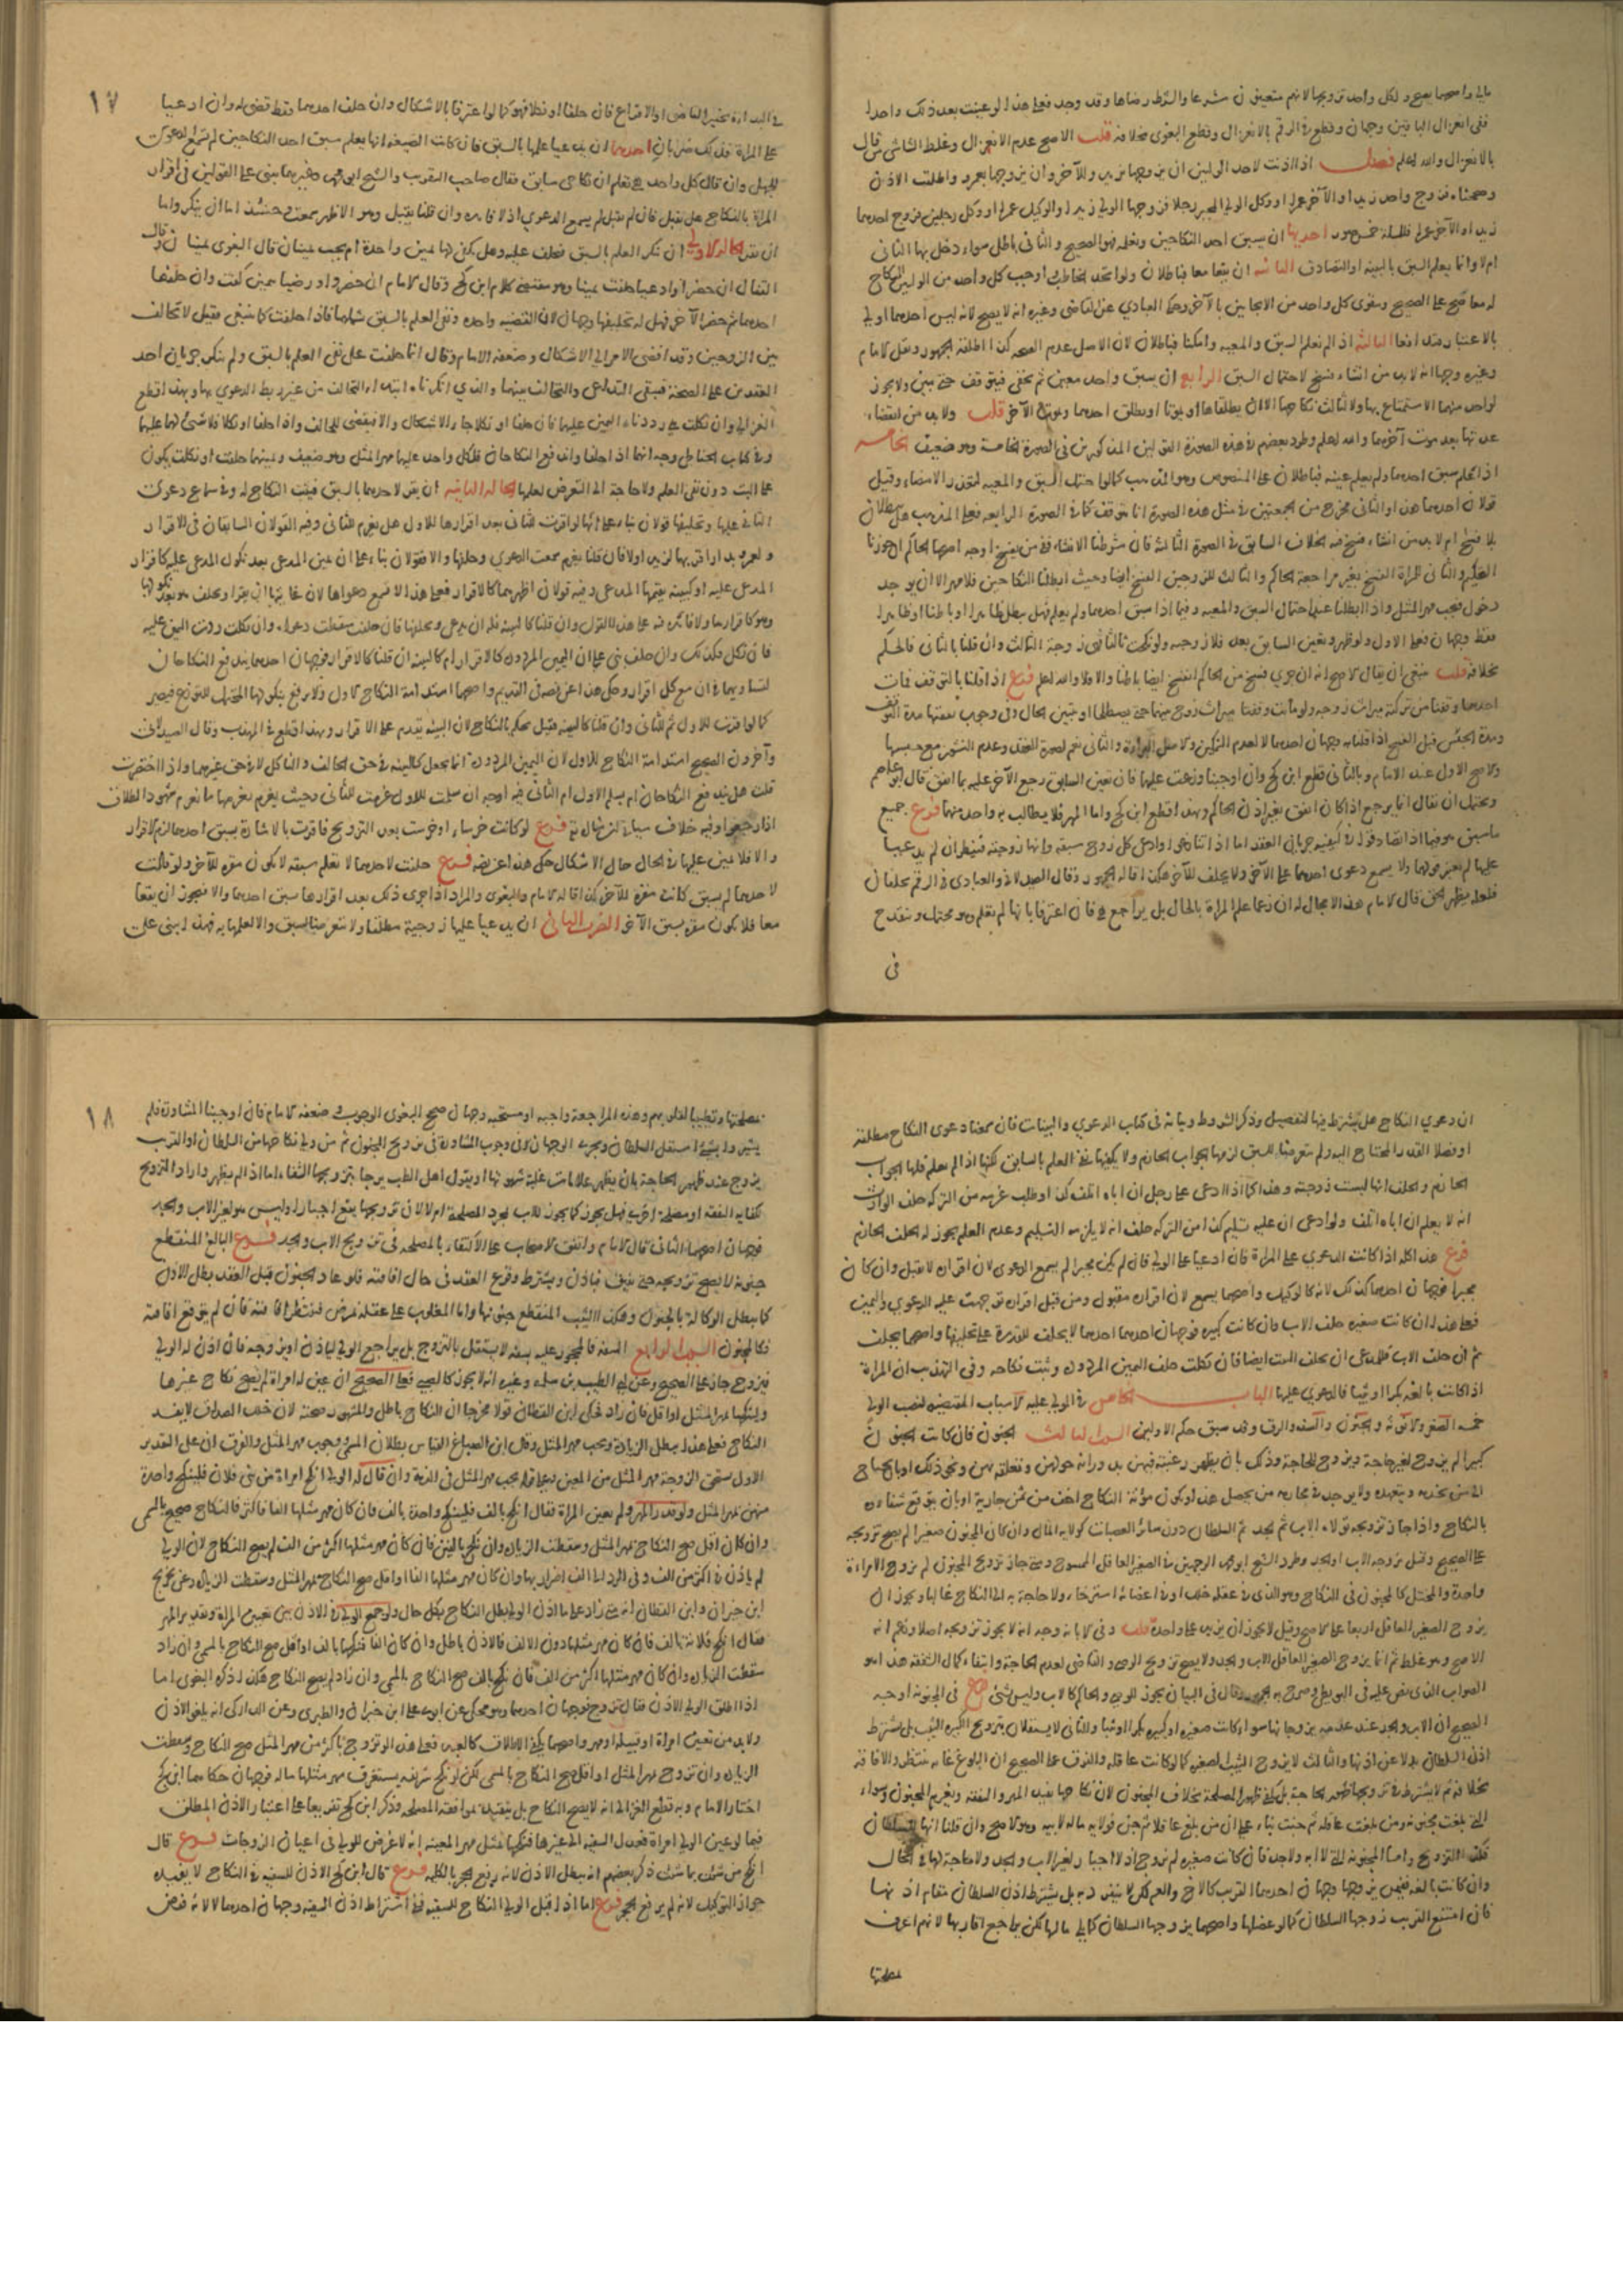 لكل واحد تزويجها لانهم متعينون شرعا والشرط رضاها وقد وجد فعلى هذا لو عينت بعد ذلك واحدا
ففي انعزال الباقين وجهان وقطع في الرقم بالانعزال وقطع البغوى بخلافه قلت الاصح عدم الانعزال وغلط الشاشي من قال
بالانعزال والله اعلم فصل اذا اذنت لاحد الوليين ان يزوجها بزيد وللآخر ان يزوجها بعمرو واطلقت الاذن
وصححناه فزوج واحد زيدا والآخر عمرا او وكل الولي المجبر رجلا فزوجها الولي زيدا والوكيل عمرا او وكل رجلين فزوج احدهما
زيدا والآخر عمرا فللمسئلة خمس صور احديها ان يسبق احد النكاحين ونعلمه فهو الصحيح والثاني باطل سواء دخل بها الثاني
ام لا وانما يعلم السبق بالبينة او التصادق الثانيه ان يقعا معا فباطلان ولو اتحد الخاطب واوجب كل واحد من الوليين النكاح
له معا صح على الصحيح ويتقوى كل واحد من الايجابين بالآخر وحكى العبادي عن القاضي وغيره انه لا يصح لانه ليس احدهما اولى
بالاعتبار فتدافعا الثالثه اذا لم نعلم السبق والمعية وامكنا فباطلان لان الاصل عدم الصحة كذا اطلقه الجمهور ونقل الامام
وغيره وجها انه لابد من انشاء فسخ لاحتمال السبق الرابع ان يسبق واحد معين ثم يخفى فيتوقف حتى يبين ولا يجوز
لواحد منهما الاستمتاع بها ولا لثالث نكاحها الا ان يطلقاها او يموتا او يطلق احدهما ويموت الآخر قلت ولا بد من انقضاء
عدتها بعد موت آخرهما والله اعلم وطرد بعضهم في هذه الصورة القولين المذكورين في الصورة الخامسة وهو ضعيف الخامسه
اذا علم سبق احدهما ولم يعلم عينه فباطلان على المنصوص وهو المذهب كما لو احتمل السبق والمعية لتعذر الامضاء وقيل
قولان احدهما هذا والثاني مخرج من الجمعتين في مثل هذه الصورة انا نتوقف كما في الصورة الرابعة فعلى المذهب هل يبطلان
بلا فسخ ام لابد من انشاء فسخ فيه الخلاف السابق في الصورة الثالثة فان شرطنا الانشاء ففيمن يفسخ اوجه اصحها الحاكم
والثاني للمراة الفسخ بغير مراجعة الحاكم والثالث للزوجين الفسخ ايضا وحيث ابطلنا النكاحين فلا مهر الا ان يوجد
دخول فيجب مهر المثل واذا ابطلنا عند احتمال السبق والمعية وفيما اذا سبق احدهما ولم يعلم فهل يبطل ظاهرا وباطنا او ظاهرا
فقط وجهان فعلى الاول لو ظهر وتعين السابق بعد فلا زوجية ولو نكحت ثالثا فهي زوجة الثالث وان قلنا بالثاني فالحكم
بخلافه قلت ينبغي ان يقال الاصح انه ان جرى فسخ من الحاكم انفسخ ايضا باطنا والا فلا والله اعلم فرع اذا قلنا بالتوقف فمات
احدهما وقفنا من تركته ميراث زوجة ولو ماتت وقفنا ميراث زوج بينهما حتى يصطلحا او يتبين الحال وفي وجوب نفقتها مدة التوقف
ومدة الحبس قبل الفسخ اذا قلنا به وجهان احدهما لا لعدم التمكين والثاني نعم لصورة العقد وعدم النشوز مع حبسها
والاصح الاول عند الامام وبالثاني قطع ابن كج وان اوجبنا وزعت عليهما فان تعين السابق رجع الآخر عليه بما انفق قال ابو عاصم
ويحتمل ان يقال انما يرجع اذا كان انفق بغير اذن الحاكم وبهذا قطع ابن كج واما المهر فلا يطالب به واحد منهما فرع جميع
ما سبق هو فيما اذا تصادقوا في كيفية جريان العقد اما اذا تنازعوا وادعى كل زوج سبقه وانها زوجته فينظر ان لم يدعيا
عليها لم يعتبر قولهما ولا يسمع دعوى احدهما على الآخر ولا يحلف للآخر هكذا قاله الجمهور وقال الصيدلاني والعبادى في الرقم يحلفان
فلعله يظهر الحق قال الامام هذا لا مجال له ان زعما علم المراة بالحال بل يراجع هي فان اعترفا بانها لم تعلم فهو محتمل وينقدح
في
١٧
في البداءة تخيير القاضي او الاقراع فان حلفا او نكلا فهو كما لو اعترفا بالاشكال وان حلف احدهما فقط قضي له وان ادعيا
على المراة فذلك ضربان احدهما ان يدعيا علمها بالسبق فان كانت الصيغة انها يعلم سبق احد النكاحين لم تسمع الدعوى
للجهل وان قال كل واحد هي تعلم ان نكاحي سابق فقال صاحب التقريب والشيخ ابو محمد وغيرهما يبنى على القولين في اقرار
المراة بالنكاح هل يقبل فان لم يقبل لم يسمع الدعوى اذ لا فايدة وان قلنا يقبل وهو الاظهر سمعت وحينئذ اما ان ينكر واما
ان تقر الحالة الاولى ان تنكر العلم بالسبق فتحلف عليه وهل يكفي لهما يمين واحدة ام يجب يمينان قال البغوى يمينان وقال
القفال ان حضرا وادعيا حلفت يمينا وهو مقتضى كلام ابن كج وقال الامام ان حضرا ورضيا بيمين كفت وان حلفها
احدهما ثم حضر الآخر فهل له تحليفها وجهان لان القضية واحدة ونفي العلم بالسبق شاملهما فاذا حلفت كما ينبغي فقيل لا تحالف
بين الزوجين وقد افضى الامر الى الاشكال وضعفه الامام وقال انما حلفت على نفي العلم بالسبق ولم ينكر جريان احد
العقدين على الصحة فيبقى التداعي والتحالف بينهما والذي انكرناه ابتداء التحالف من غير ربط الدعوى بها وبهذا قطع
الغزالي وان نكلت هي رددنا اليمين عليهما فان حلفا او نكلا جاء الاشكال والا فيقضى للحالف واذا حلفا او نكلا فلا شيئ لهما عليها
وفي كتاب الحناطي وجه انهما اذا حلفا واندفع النكاحان فلكل واحد عليها مهر المثل وهو ضعيف ويمينهما حلفت او نكلت يكون
على البت دون نفي العلم ولا حاجة الى التعرض لعلمها الحالة الثانيه ان يقر لاحدهما بالسبق فيثبت النكاح له وفي سماع دعوى
الثاني عليها وتحليفها قولان بناء على انها لو اقرت للثاني بعد اقرارها للاول هل يغرم للثاني وفيه القولان السابقان في الاقرار
قلنا يغرم سمعت الدعوى وحلفها والا فقولان بناء على ان يمين المدعى بعد نكول المدعى عليه كاقرار
المدعى عليه او كبينة يقيمها المدعى وفيه قولان اظهرهما كالاقرار فعلى هذا لا تسمع دعواها لان غايتها ان يقر او يحلف هو بعد نكولها
وهو كاقرارها ولا فائدة فيه على هذا القول وان قلنا كالبينة فله ان يدعي ويحلفها فان حلفت سقطت دعواه وان نكلت ردت اليمين عليه
فان نكل فكذلك وان حلف بني على ان اليمين المردودة كالاقرار ام كالبينة ان قلنا كالاقرار فوجهان احدهما يندفع النكاحان
لتساويهما في ان مع كل اقرار وحكى هذا عن نصه في القديم واصحهما استدامة النكاح للاول ولا يرفع بنكولها المحتمل للتورع فيصير
كما لو اقرت للاول ثم للثاني وان قلنا كالبينة فقيل يحكم بالنكاح لان البينة تقدم على الاقرار وبهذا قطع في المهذب وقال الصيدلاني
وآخرون الصحيح استدامة النكاح للاول لان اليمين المردودة انما يجعل كالبينة في حق الحالف والناكل لا في حق غيرهما واذا اختصرت
قلت هل يندفع النكاحان ام يسلم للاول ام الثاني فيه اوجه ان سلمت للاول غرمت للثاني وحيث يغرم يغرمها ما يغرم شهود الطلاق
اذا رجعوا وفيه خلاف سياتي ان شاء الله تع فرع لو كانت خرساء او خرست بعد التزويج فاقرت بالاشارة بسبق احدهما لزم الاقرار
والا فلا يمين عليها في الحال حال الاشكال حكى هذا عن نصه فرع حلفت لاحدهما لا تعلم سبقه لا يكون مقرة للآخر ولو قالت
لاحدهما لم يسبق كانت مقرة للآخر كذا قاله الامام والبغوى والمراد اذا جرى ذلك بعد اقرارها بسبق احدهما والا فيجوز ان يقعا
معا فلا يكون مقرة بسبق الآخر الضرب الثاني ان يدعيا عليها زوجية مطلقة ولا يتعرضا للسبق ولا لعلمها به فهذا يبنى على
ان دعوى النكاح هل يشترط فيها التفصيل وذكر الشروط وبيانه في كتاب الدعوى والبينات فان سمعنا دعوى النكاح مطلقة
او فصلا القدر المحتاج اليه ولم يتعرضا للسبق لزمها الجواب الجازم ولا يكفيها نفي العلم بالسابق لكنها اذا لم يعلم فلها الجواب
الجازم والحلف انها ليست زوجته وهذا كما اذا ادعى على رجل ان اباه اتلف كذا وطلب غرمه من التركة حلف الوارث
انه لا يعلم ان اباه اتلف ولو ادعى ان عليه تسليم كذا من التركة حلف انه لا يلزمه التسليم وعدم العلم يجوز له الحلف الجازم
فرع هذا كله اذا كانت الدعوى على المراة فان ادعيا على الولي فان لم يكن مجبرا لم يسمع الدعوى لان اقراره لا يقبل وان كان
مجبرا فوجهان احدهما كذلك لانه كالوكيل واصحهما يسمع لان اقراره مقبول ومن قبل اقراره توجهت عليه الدعوى واليمين
فعلى هذا ان كانت صغيرة حلف الاب وان كانت كبيرة فوجهان احدهما لا يحلف للقدرة على تحليفها واصحهما يحلف
ثم ان حلف الاب فللمدعي ان يحلف البنت ايضا فان نكلت حلف اليمين المردودة وثبت نكاحه وفي التهذيب ان المراة
اذا كانت بالغة بكرا او ثيبا فالدعوى عليها الباب الخامس في المولى عليه الاسباب المقتضيه لنصب الولي
خمسه الصغر والانوثة والجنون والسفه والرق وقد سبق حكم الاولين السبب الثالث الجنون فان كان المجنون
كبيرا لم يزوج لغير حاجة ويزوج للحاجة وذلك بان يظهر رغبته فيهن بدورانه حولهن وتعلقه بهن ونحو ذلك او بان يحتاج
الى من يخدمه ويتعهده ولا يوجد في محارمه من يحصل هذا ويكون مؤنة النكاح اخف من ثمن جارية او بان يتوقع شفاءه
بالنكاح واذا جاز تزويجه تولاه الاب ثم الجد ثم السلطان دون سائر العصبات كولاية المال وان كان المجنون صغيرا لم يصح تزويجه
على الصحيح وقيل يزوجه الاب او الجد وطرد الشيخ ابو محمد الوجهين في الصغير العاقل الممسوح ومتى جاز تزويج المجنون لم يزوج الا امراة
واحدة والمختل كالمجنون في النكاح وهو الذي في عقله خلل وفي اعضائه استرخاء ولا حاجة به الى النكاح غالبا ويجوز ان
يزوج الصغير العاقل اربعا على الاصح وقيل لا يجوز ان يزيد على واحدة قلت وفي الابانة وجه انه لا يجوز تزويجه اصلا وزعم انه
الاصح وهو غلط ثم انما يزوج الصغير العاقل الاب والجد ولا يصح تزويج الوصي والقاضي لعدم الحاجة وانتفاء كمال الشفقة هذا هو
الصواب الذي نص عليه في البويطي وصرح به الجمهور وقال في البيان يجوز للوصي والحاكم كالاب وليس بشئ فرع في المجنونة اوجه
الصحيح ان الاب والجد عند عدمه يزوجانها سواء كانت صغيرة او كبيرة بكرا او ثيبا والثاني لا يستقلان بتزويج الكبيرة الثيب بل يشترط
اذن السلطان بدلا عن اذنها والثالث لا يزوج الثيب الصغيرة كما لو كانت عاقلة والفرق على الصحيح ان البلوغ غاية ينتظر والافاقة
بخلافه ثم لا يشترط في تزويجها ظهور الحاجة بل يكفي ظهور المصلحة بخلاف المجنون لان نكاحها يفيد المهر والنفقة ويغرم المجنون وسواء
التي بلغت مجنونة ومن بلغت عاقلة ثم جنت بناء على ان من بلغ عاقلا ثم جن فولاية ماله لابيه وهو الاصح وان قلنا انها للسلطان
فكذلك التزويج واما المجنونة التي لا اب لها ولا جد فان كانت صغيرة لم تزوج اذ لا اجبار لغير الاب والجد ولا حاجة لها في الحال
وان كانت بالغة فيمن يزوجها وجهان احدهما القريب كالاخ والعم لكن لا ينفرد به بل يشترط اذن السلطان مقام اذنها
فان امتنع القريب زوجها السلطان كما لو عضلها واصحهما يزوجها السلطان كما يلي مالها لكن يراجع اقاربها لانهم اعرف
بمصلحتها
١٨
بمصلحتها وتطييبا لقلوبهم وهذه المراجعة واجبة او مستحبة وجهان صحح البغوى الوجوب وضعفه الامام فان اوجبنا المشاورة فلم
يشيروا بشيئ استقل السلطان ويجري الوجهان في وجوب المشاورة في تزويج المجنون ثم من ولي نكاحها من السلطان او القريب
يزوج عند ظهور الحاجة بان يظهر علامات غلبة شهوتها او يقول اهل الطب يرجا بتزويجها الشفاء اما اذا لم يظهر واراد التزويج
لكفاية النفقة او مصلحة اخرى فهل يجوز كما يجوز للاب لمجرد المصلحة ام لا لان تزويجها يقع اجبارا وليس هو لغير الاب والجد
فوجهان اصحهما الثاني قال الامام واتفق الاصحاب على الاكتفاء بالمصلحة في تزويج الاب والجد فرع البالغ المنقطع
جنونه لا يصح تزويجه حتى يفيق فياذن ويشترط وقوع العقد في حال افاقته فلو عاد الجنون قبل العقد بطل الاذن
كما يبطل الوكالة بالجنون وهكذا الثيب المنقطع جنونها واما المغلوب على عقله بمرض فتنتظر افاقته فان لم يتوقع افاقته
فكالمجنون السبب الرابع السفه فالمحجور عليه بسفه لا يستقل بالتزوج بل يراجع الولي لياذن او يزوجه فان اذن له الولي
فتزوج جاز على الصحيح وعن ابي الطيب بن سلمه وغيره انه لا يجوز كالصبي فعلى الصحيح ان عين له امراة لم يصح نكاح غيرها
وينكحها بمهر المثل او اقل فان زاد فحكى ابن القطان قولا مخرجا ان النكاح باطل والمشهور صحته لان خلل الصداق لا يفسد
النكاح فعلى هذا يبطل الزيادة ويجب مهر المثل وقال ابن الصباغ القياس بطلان المسمى ووجوب مهر المثل والفرق ان على التقدير
الاول يستحق الزوجة مهر المثل من المعين وعلى قوله يجب مهر المثل في الذمة وان قال له الولي انكح امراة من بني فلان فلينكح واحدة
منهن بمهر المثل ولو قدر المهر ولم يعين المراة فقال انكح بالف فلينكح واحدة بالف فان كان مهر مثلها الفا او اكثر فالنكاح صحيح بالمسمى
وان كان اقل صح النكاح بمهر المثل وسقطت الزيادة وان نكح بالفين فان كان مهر مثلها اكثر من الف لم يصح النكاح لان الولي
لم ياذن في اكثر من الف وفي الرد الى الف اضرار بها وان كان مهر مثلها الفا او اقل صح النكاح بمهر المثل وسقطت الزيادة وعن تخريج
ابن خيران وابن القطان انه متى زاد على ما اذن الولي بطل النكاح بكل حال ولو جمع الولي في الاذن بين تعيين المراة وتقدير المهر
فقال انكح فلانة بالف فان كان مهر مثلها دون الالف فالاذن باطل وان كان الفا فنكحها بالف او اقل صح النكاح بالمسمى وان زاد
سقطت الزيادة وان كان مهر مثلها اكثر من الف فان نكح بالف صح النكاح بالمسمى وان زاد لم يصح النكاح هكذا ذكره البغوى اما
اذا اطلق الولي الاذن فقال تزوج فوجهان احدهما وهو محكى عن ابوي على ابن خيران والطبرى وعن الداركى انه يلغو الاذن
ولابد من تعيين امراة او قبيلة او مهر واصحهما يكفي الاطلاق كالعبد فعلى هذا لو تزوج باكثر من مهر المثل صح النكاح وسقطت
الزيادة وان تزوج بمهر المثل او اقل صح النكاح بالمسمى لكن لو نكح شريفة يستغرق مهر مثلها ماله فوجهان حكاهما ابن كج
اختار الامام وبه قطع الغزالي انه لا يصح النكاح بل يتقيد بموافقة المصلحة وذكر ابن كج تفريعا على اعتبار الاذن المطلق
فيما لو عين الولي امراة فعدل السفيه الى غيرها فنكحها بمثل مهر المعينة انه لا غرض للولي في اعيان الزوجات فرع قال
انكح من شئت بما شئت ذكر بعضهم انه يبطل الاذن لانه رفع الحجر بالكلية فرع قال ابن كج الاذن للسفيه في النكاح لا يفيده
جواز التوكيل لانه لم يرفع الحجر فرع اما اذا قبل الولي النكاح للسفيه ففي اشتراط اذن السفيه وجهان احدهما لا لانه فوض